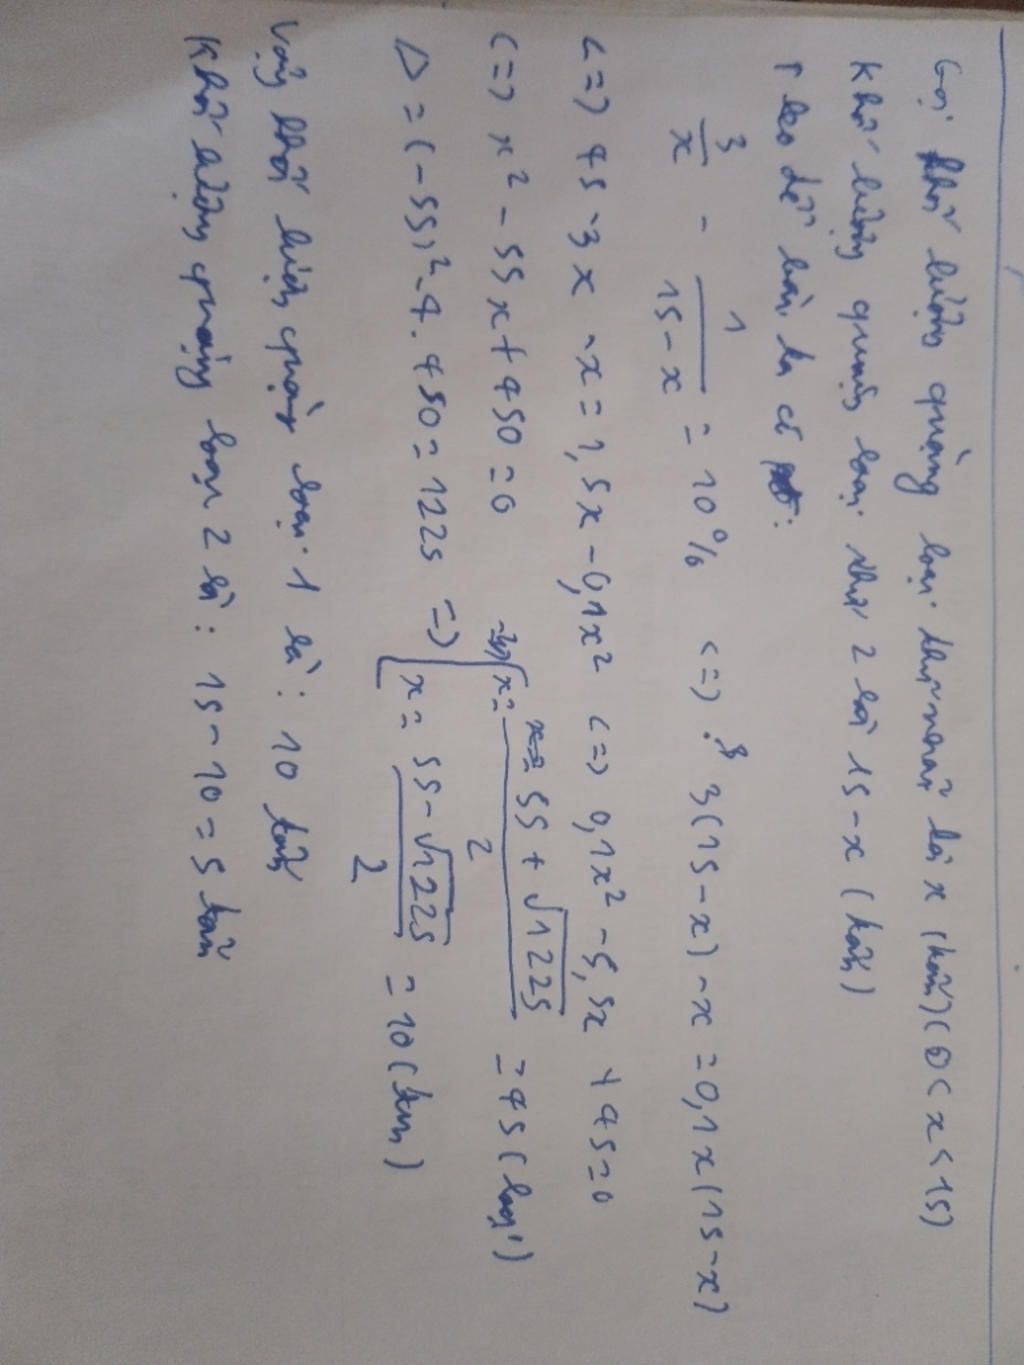 Gọi khối lượng quặng loại thứ nhất là x (tấn) (0 < x < 15)
Khối lượng quặng loại thứ 2 là 15 - x (tấn)
Theo đề bài ta có :
3/x - 1/(15-x) = 10% <=> 3(15-x) - x = 0,1x(15-x)
<=> 45 - 3x - x = 1,5x - 0,1x² <=> 0,1x² - 5,5x + 45 = 0
<=> x² - 55x + 450 = 0
x = (55 + √1225)/2 = 45 (loại)
Δ = (-55)² - 4.450 = 1225 =>
x = (55 - √1225)/2 = 10 (
Vậy khối lượng quặng loại 1 là : 10 tấn
Khối lượng quặng loại 2 là : 15 - 10 = 5 tấn